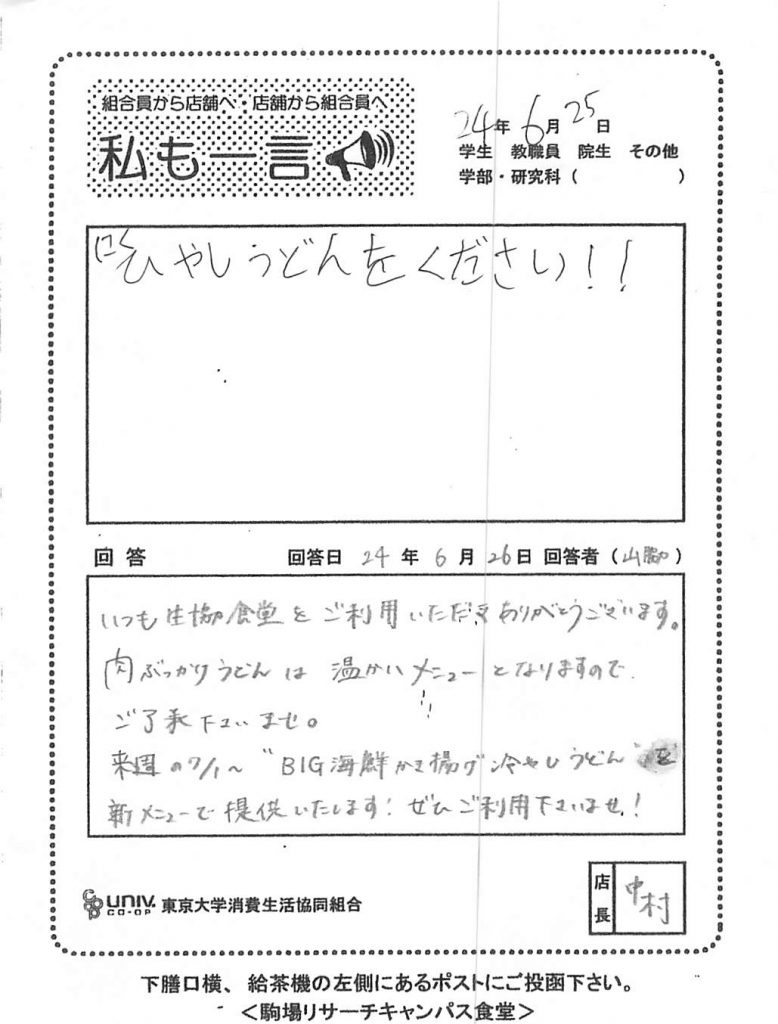 組合員から店舗へ・店舗から組合員へ
私も一言
24年 6月 25日
学生 教職員 院生 その他
学部・研究科（ ）
ひやしうどんをください！！
回答 回答日 24 年 6 月 26日 回答者（山脇）
いつも生協食堂をご利用いただきありがとうございます。
肉ぶっかけうどんは 温かいメニューとなりますので
ご了承下さいませ。
来週の7/1〜 "BIG海鮮かき揚げ冷やしうどん"を
新メニューで提供いたします！ぜひご利用下さいませ！
UNIV. CO-OP 東京大学消費生活協同組合
店長 中村
下膳口横、給茶機の左側にあるポストにご投函下さい。
＜駒場リサーチキャンパス食堂＞